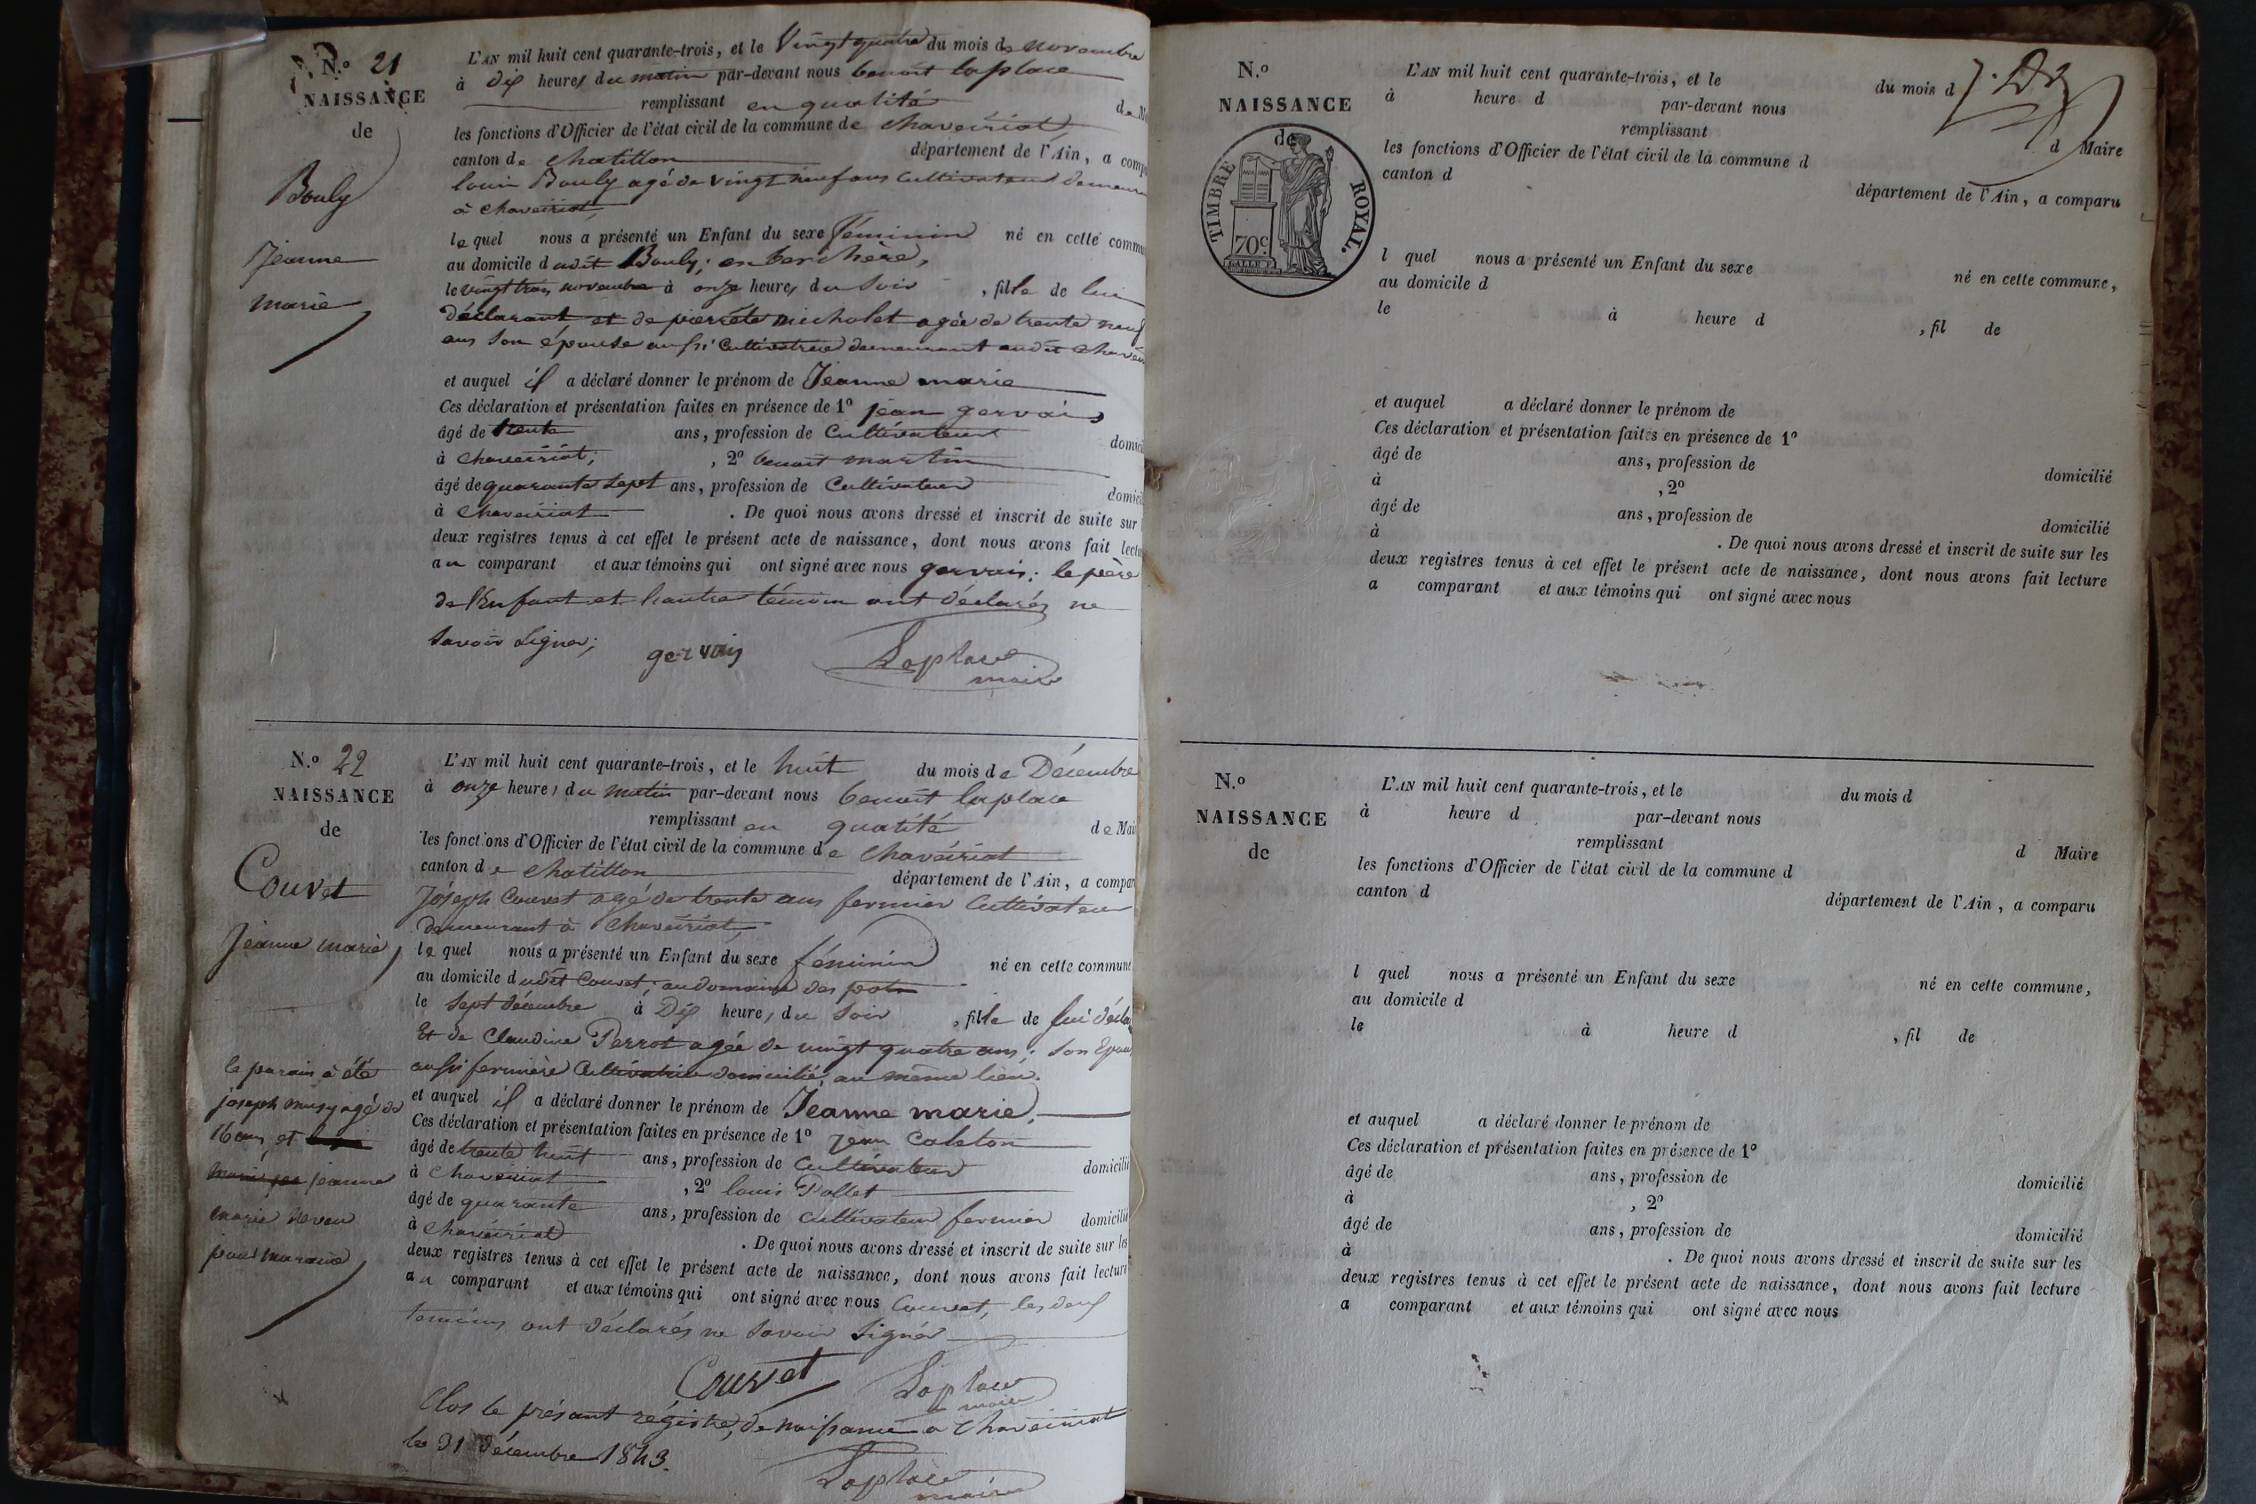 N.º 21
NAISSANCE
de
Bouly
Jeanne
marie
L'AN mil huit cent quarante-trois, et le Vingt quatre du mois de novembre
à dix heures du matin par-devant nous benoit laplace
remplissant en qualité de
les fonctions d'Officier de l'état civil de la commune de chaveiriat
canton de chatillon département de l'Ain, a comp
louis Bouly agé de vingt neuf ans cultivateur
à chaveiriat,
le quel nous a présenté un Enfant du sexe féminin né en cette comm
au domicile dudit Bouly; en
le vingt trois novembre à onze heures du soir , fille de lui
déclarant et de pierrete micholet agée de trente neuf
ans son épouse aussi cultivatrice demeurant audit
et auquel il a déclaré donner le prénom de Jeanne marie
Ces déclaration et présentation faites en présence de 1º jean gervais
âgé de trente ans, profession de cultivateur domici
à chaveiriat; , 2º benoit martin
âgé de quarante sept ans, profession de cultivateur domici
à chaveiriat . De quoi nous avons dressé et inscrit de suite sur
deux registres tenus à cet effet le présent acte de naissance, dont nous avons fait lectu
au comparant et aux témoins qui ont signé avec nous gervais; le père
de l'Enfant et l'autre témoin ont déclarés ne
savoir signer;
gervais
Laplace
maire
N.º 22
NAISSANCE
de
Couvet
Jeanne marie
le parain à été
joseph musy agé de
16 ans et
jeanne
marie neveu
pour maraine
L'AN mil huit cent quarante-trois, et le huit du mois de Décembre
à onze heures du matin par-devant nous benoit laplace
remplissant en qualité de Mai
les fonctions d'Officier de l'état civil de la commune de chaveiriat
canton de chatillon département de l'Ain, a compar
Joseph Couvet agé de trente ans fermier Cultivateur
demeurant à chaveiriat,
le quel nous a présenté un Enfant du sexe féminin né en cette commune
au domicile dudit Couvet; au domaine des
le sept décembre à Dix heures du soir , fille de lui décla
Et de Claudine Perrot agée de vingt quatre ans; son Epous
aussi fermière Cultivatrice domicilié au même lieu.
et auquel il a déclaré donner le prénom de Jeanne marie,
Ces déclaration et présentation faites en présence de 1º jean Caleton
âgé de trente huit ans, profession de cultivateur domicilié
à chaveiriat , 2º louis Pollet
âgé de quarante ans, profession de cultivateur fermier domicilié
à chaveiriat . De quoi nous avons dressé et inscrit de suite sur les
deux registres tenus à cet effet le présent acte de naissance, dont nous avons fait lecture
au comparant et aux témoins qui ont signé avec nous Couvet, les deux
temoins ont déclarés ne savoir signér
Couvet
Laplace
maire
Clos le présant régistre, de naissance a chaveiriat
le 31 décembre 1843.
Laplace
maire
N.º
NAISSANCE
de
TIMBRE ROYAL.
70c
L'AN mil huit cent quarante-trois, et le du mois d
à heure d par-devant nous
remplissant d Maire
les fonctions d'Officier de l'état civil de la commune d
canton d département de l'Ain, a comparu
l quel nous a présenté un Enfant du sexe né en cette commune,
au domicile d
le à heure d , fil de
et auquel a déclaré donner le prénom de
Ces déclaration et présentation faites en présence de 1º
âgé de ans, profession de domicilié
à , 2º
âgé de ans, profession de domicilié
à . De quoi nous avons dressé et inscrit de suite sur les
deux registres tenus à cet effet le présent acte de naissance, dont nous avons fait lecture
a comparant et aux témoins qui ont signé avec nous
N.º
NAISSANCE
de
L'AN mil huit cent quarante-trois, et le du mois d
à heure d par-devant nous
remplissant d Maire
les fonctions d'Officier de l'état civil de la commune d
canton d département de l'Ain, a comparu
l quel nous a présenté un Enfant du sexe né en cette commune,
au domicile d
le à heure d , fil de
et auquel a déclaré donner le prénom de
Ces déclaration et présentation faites en présence de 1º
âgé de ans, profession de domicilié
à , 2º
âgé de ans, profession de domicilié
à . De quoi nous avons dressé et inscrit de suite sur les
deux registres tenus à cet effet le présent acte de naissance, dont nous avons fait lecture
a comparant et aux témoins qui ont signé avec nous